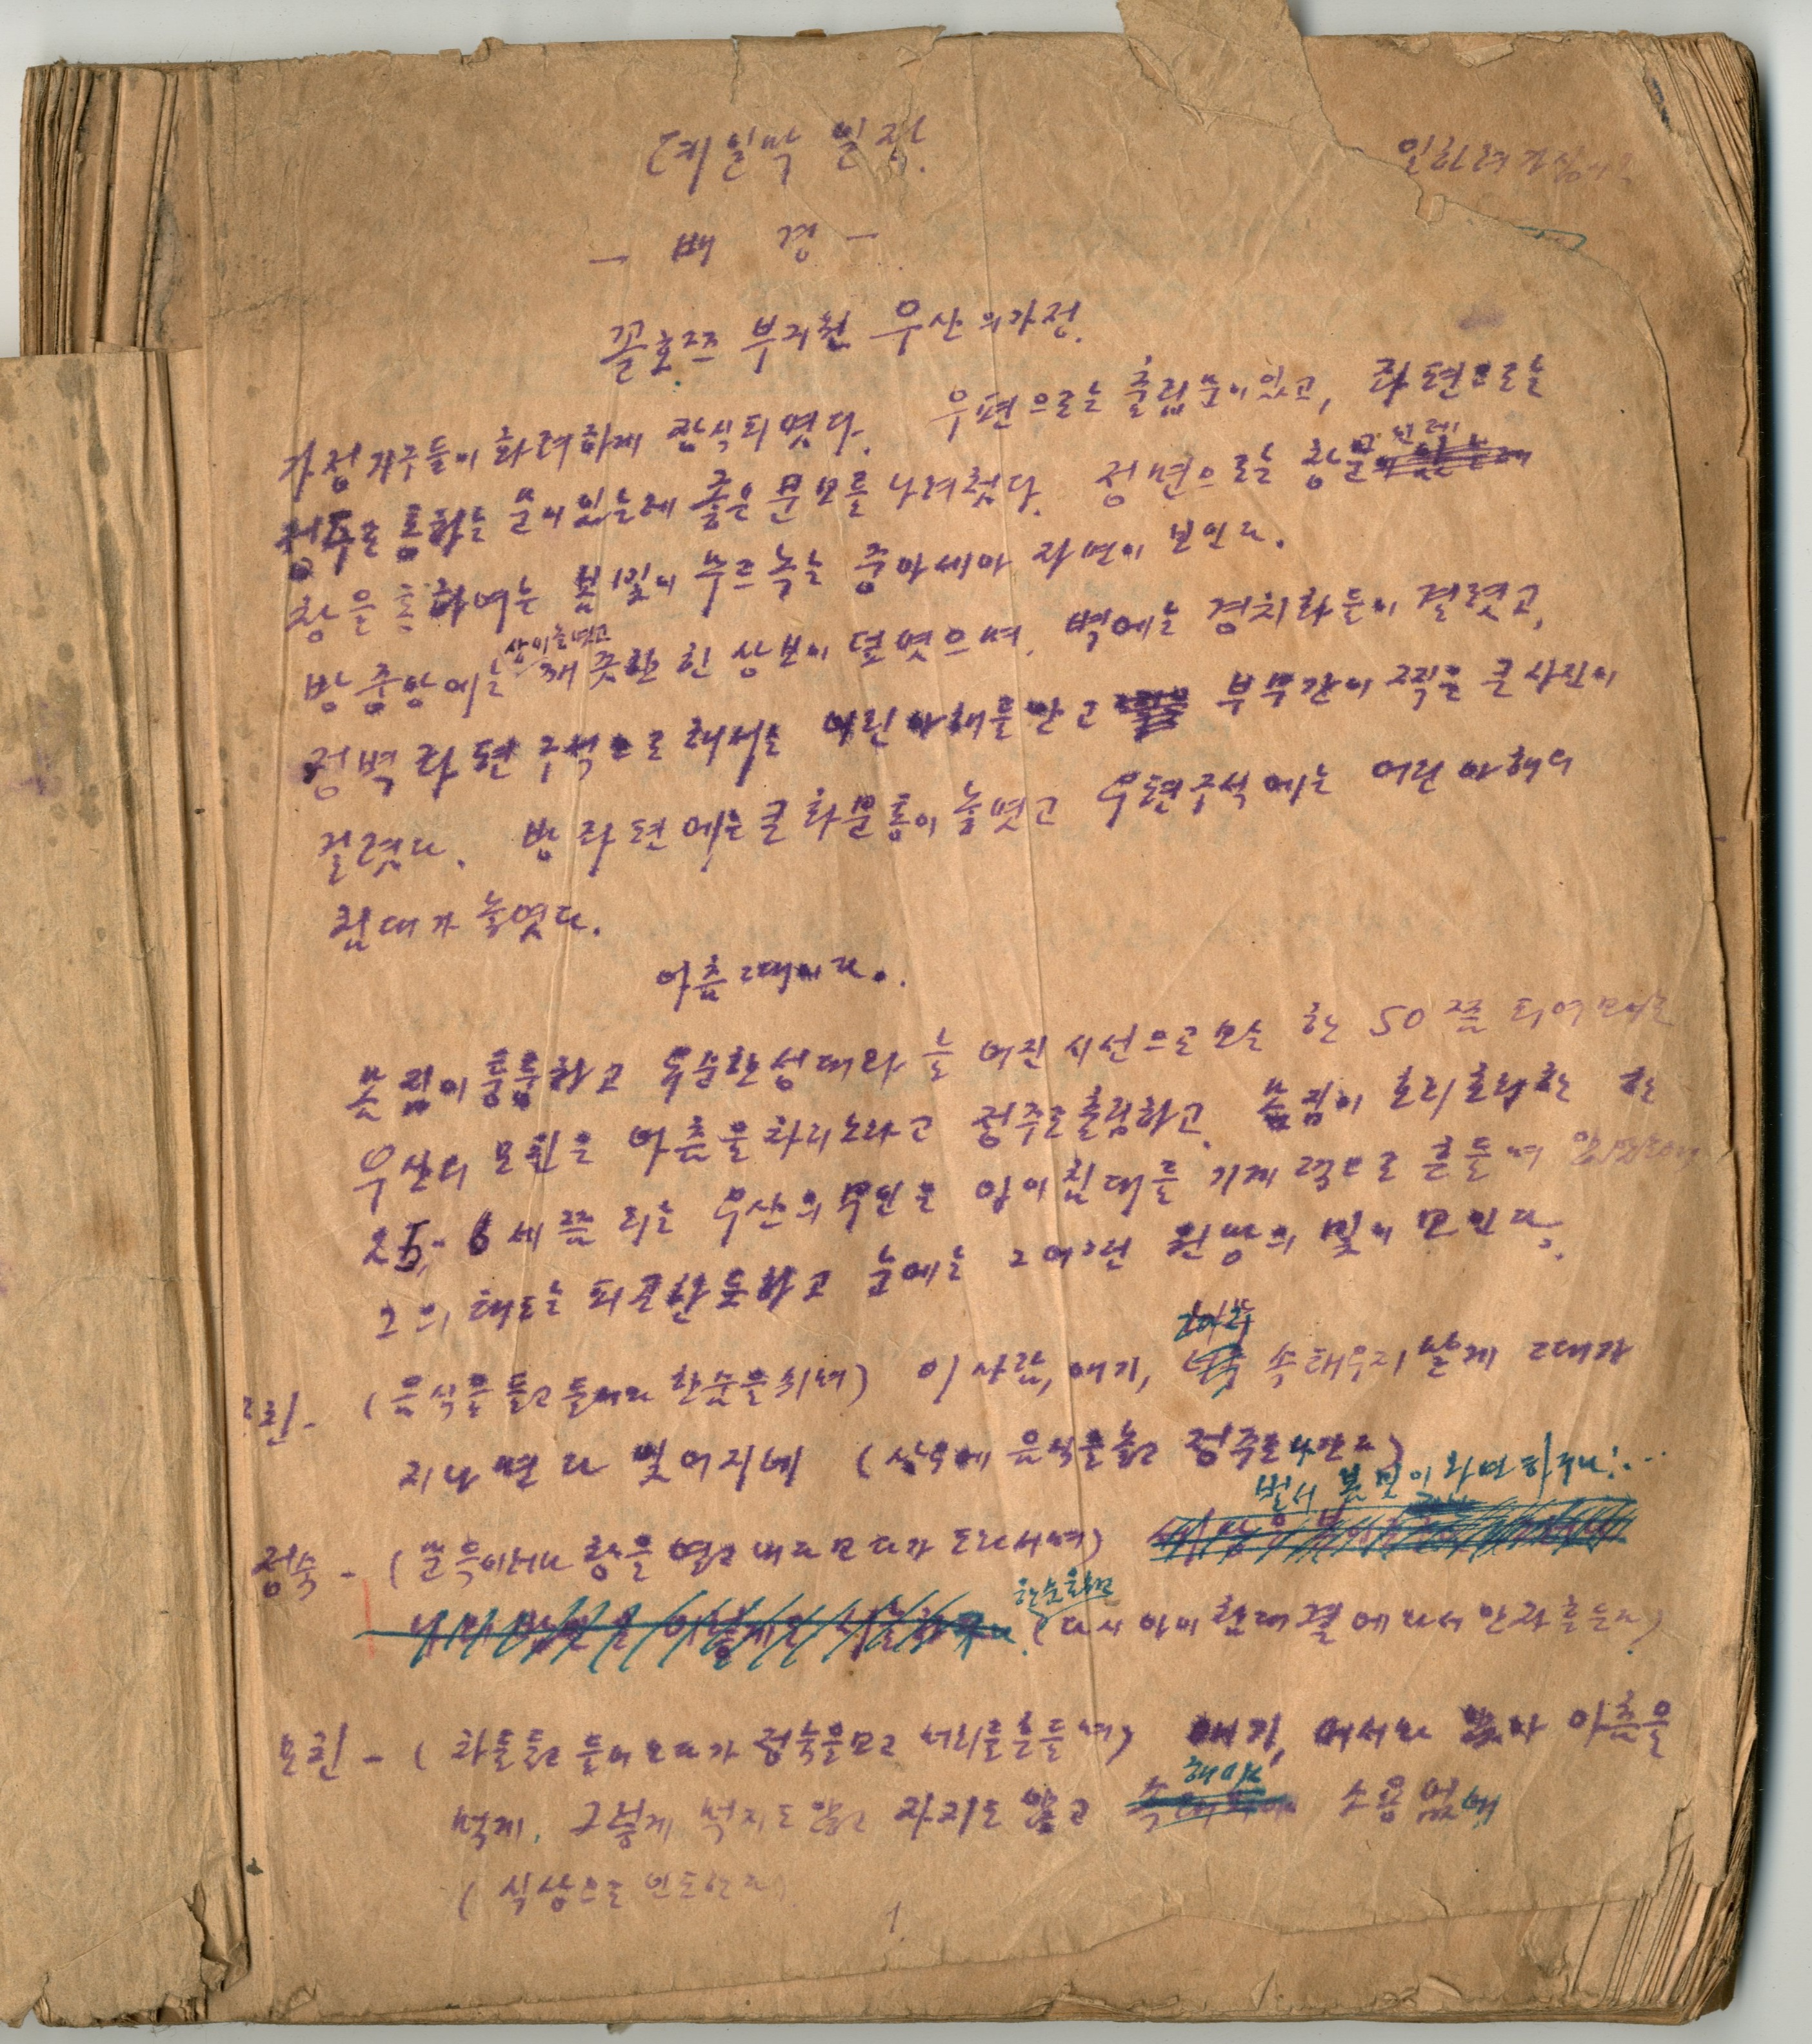 제일막 일장.
— 배 경 —
꼴호즈 부자현 우산의 가정.
가정 가구들이 화려하게 장식되였다. 우편으로는 출립문이 있고, 좌편으로는
정주로 통하는 문이 있는데 좋은 문보를 나려첬다. 정면으로는 창문
창을 통하여는 봄빛이 무르녹는 중아세아 자연이 보인다.
방중앙에는 상이 놓였고 깨끗한 힌 상보이 덮였으며. 벽에는 경치화들이 걸렸고,
정벽 좌편 구석으로 해서는 어린 아해를 안고 부부간이 찍은 큰 사진이
걸렸다. 방 좌편에는 큰 화분통이 놓였고 우편 구석에는 어린 아해의
침대가 놓였다.
아츰 때이다.
몸집이 뚱뚱하고 늘 어진 시선으로 보는 한 50쯤 되여
우산의 모친은 아츰을 차리노라고 정주로 출립하고. 몸집이 호리호리한 한
25-6세쯤 되는 우산의 부인은 앞이 침대를 기계적으로 흔들며
그의 태도는 피곤한듯하고 눈에는 그 어떤 원망의 빛이 보인다.
모친 - (음식을 들고 들어와 한숨을 쉬며) 이 사람, 애기, 너무 속 태우지 말게 그때가
지나면 다 맞어지네 (상우에 음식을 놓고 정주로 나간다)
벌서 봄빛이 완연하구나!...
정숙 - (문득 이러나 창을 열고 내다보다가 도라서며)
한숨을 쉬고 (다시 아이 침대 곁에 와서 안자 흔든다)
모친 - (차를 들고 들어오다가 정숙을 보고 머리를 흔들며) 애기, 어서 와 앉아 아츰을
먹게. 그렇게 먹지도 않고 자지도 않고 해야 소용 없네
(식상으로 인도한다)
1